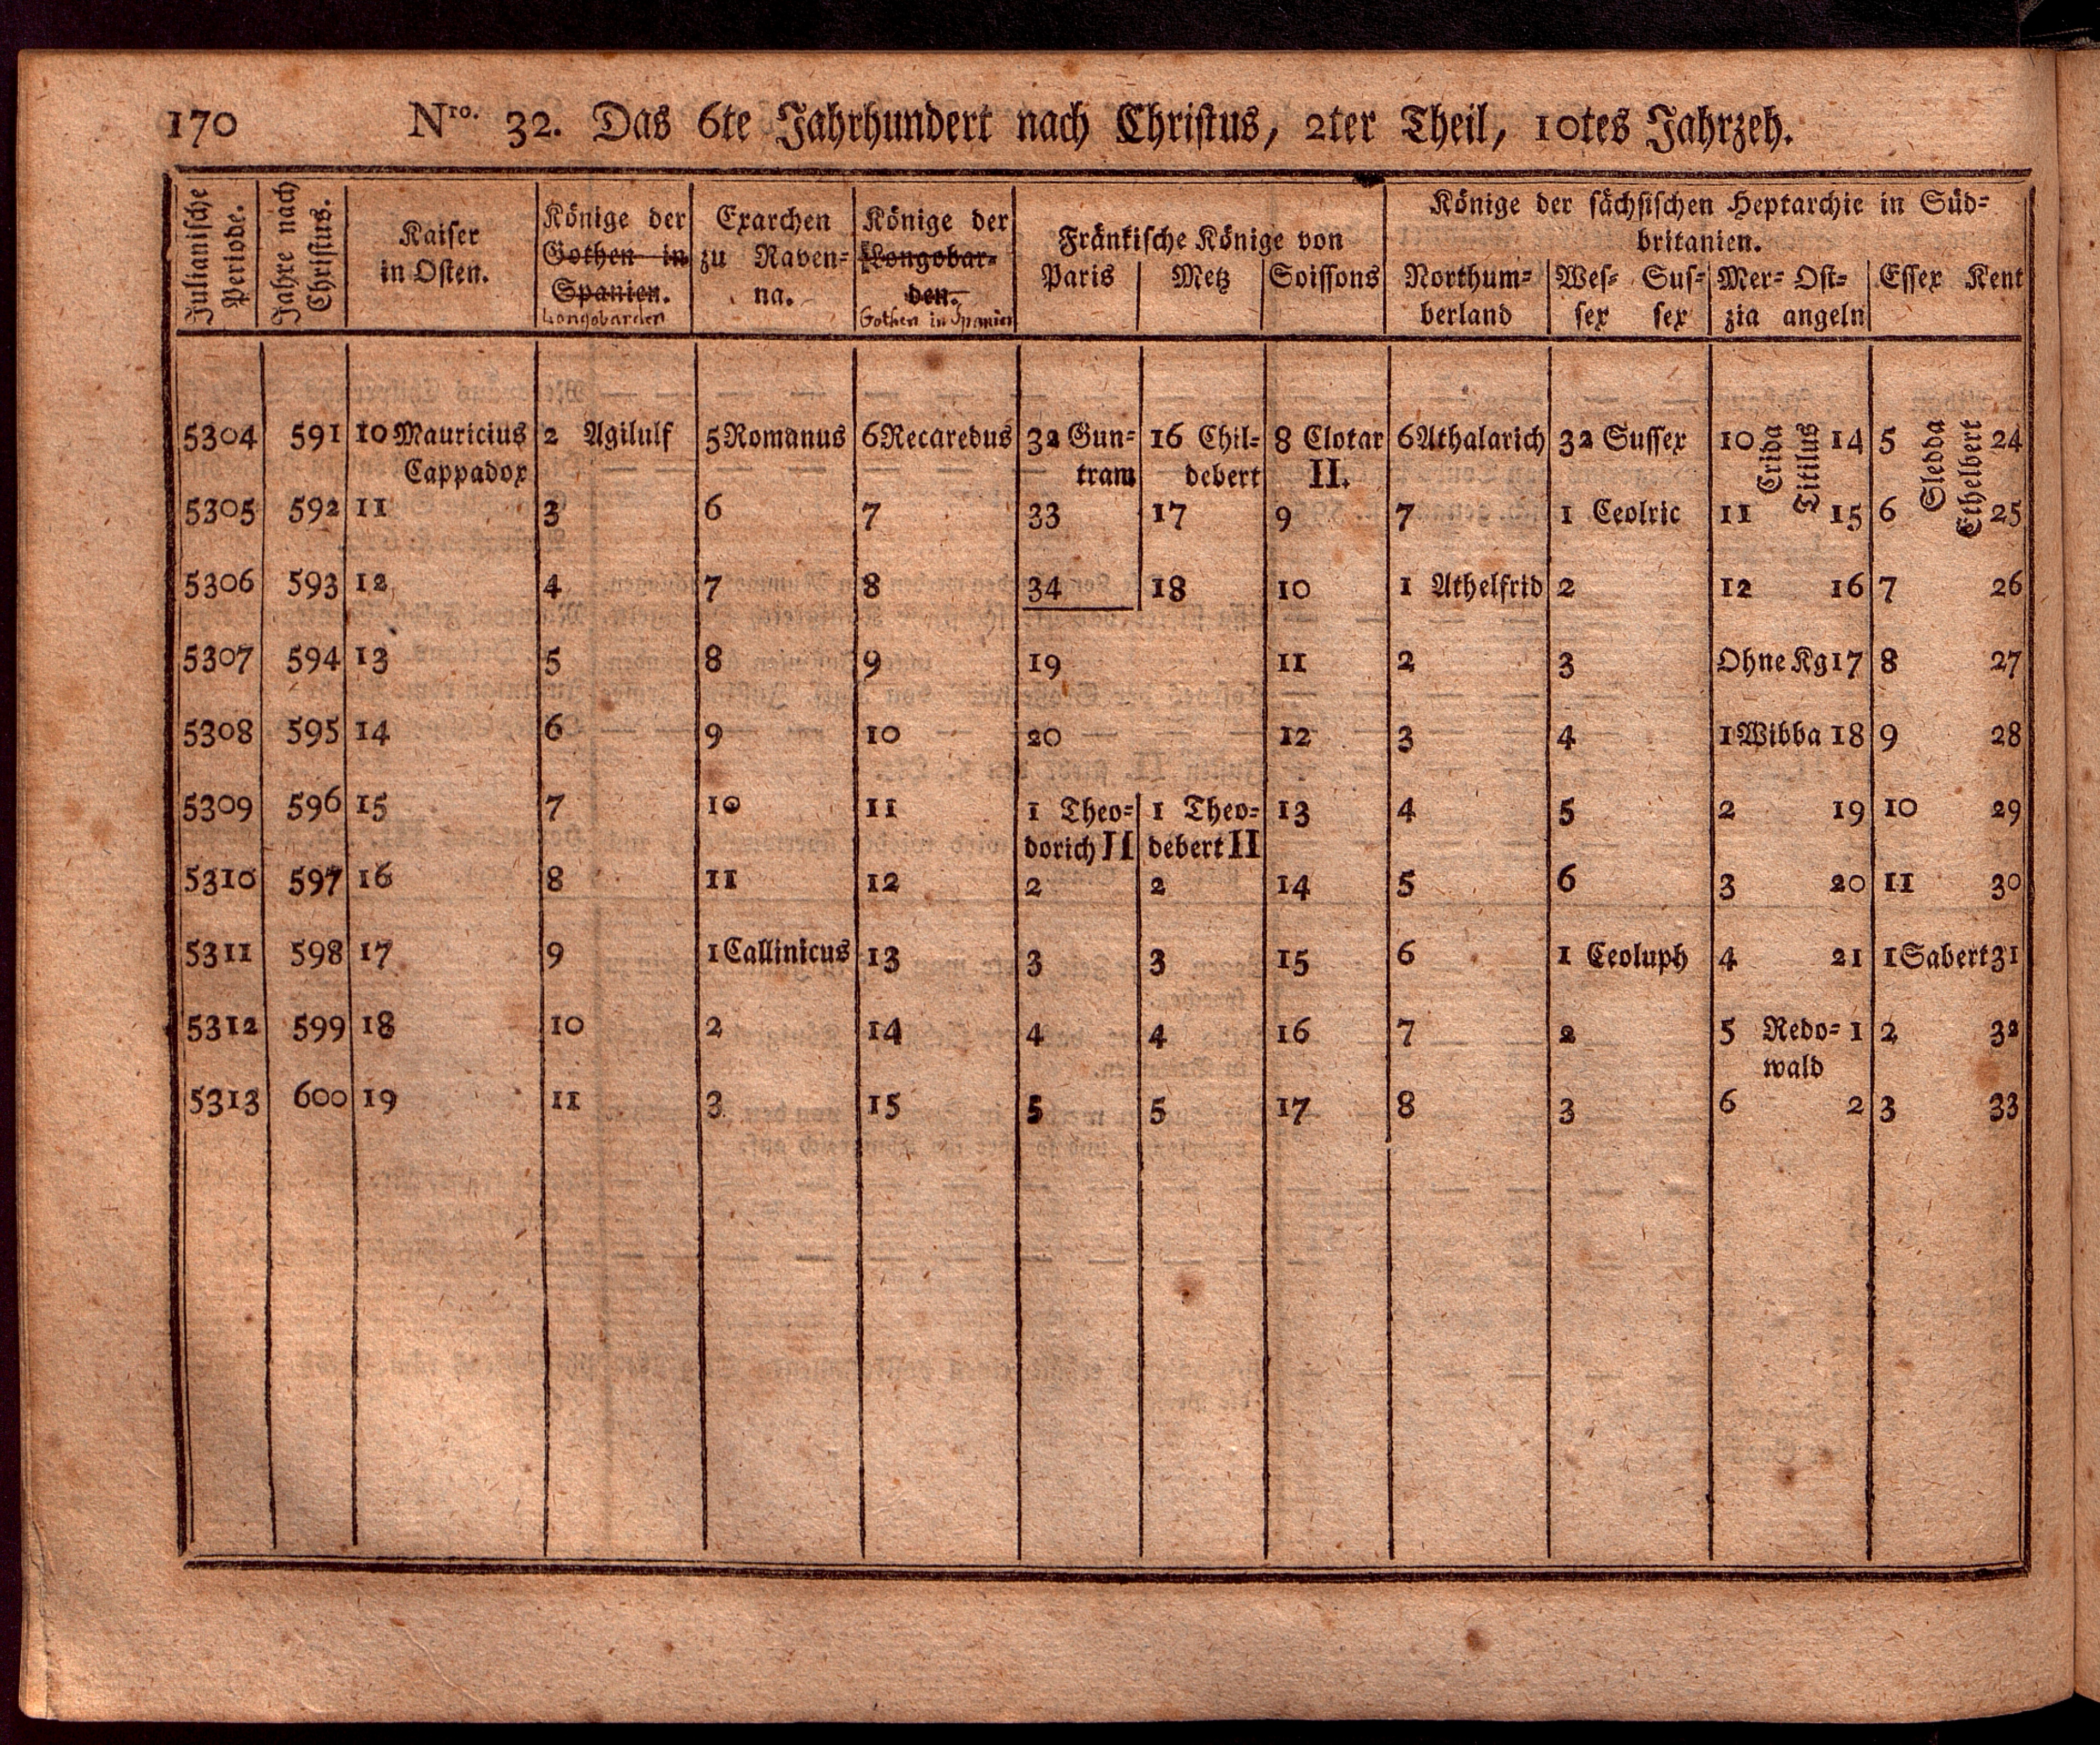 170 Nro. 32. Das 6te Jahrhundert nach Christus, 2ter Theil, 10tes Jahrzeh.
Julianische Periode.
Jahre nach Christus.
Kaiser
in Osten.
Könige der
Gothen in
Spanien.
Longobarden
Exarchen
zu Raven-
na.
Könige der
Longobar-
den.
Gothen in Spanien
Fränkische Könige von
Paris Metz Soissons
Könige der sächsischen Heptarchie in Süd-
britanien.
Northum-
berland
Wes- Sus-
sex sex
Mer- Ost-
zia angeln
Essex Kent
5304 591 10 Mauricius 2 Agilulf 5 Romanus 6 Recaredus 32 Gun- 16 Chil- 8 Clotar 6 Athalarich 32 Sussex 10 Crida Titilus 14 5 Sledda Ethelbert 24
Cappadox tram debert II.
5305 592 11 3 6 7 33 17 9 7 1 Ceolric 11 15 6 25
5306 593 12 4 7 8 34 18 10 1 Athelfrid 2 12 16 7 26
5307 594 13 5 8 9 19 11 2 3 Ohne Kg 17 8 27
5308 595 14 6 9 10 20 12 3 4 1 Wibba 18 9 28
5309 596 15 7 10 11 1 Theo- 1 Theo- 13 4 5 2 19 10 29
dorich II debert II
5310 597 16 8 11 12 2 2 14 5 6 3 20 11 30
5311 598 17 9 1 Callinicus 13 3 3 15 6 1 Ceoluph 4 21 1 Sabert 31
5312 599 18 10 2 14 4 4 16 7 2 5 Redo- 1 2 32
wald
5313 600 19 11 3 15 5 5 17 8 3 6 2 3 33